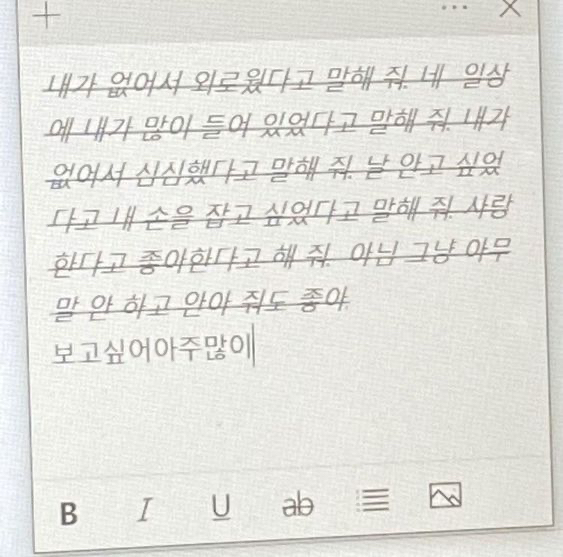 내가 없어서 외로웠다고 말해 줘. 네 일상
에 내가 많이 들어 있었다고 말해 줘. 내가
없어서 심심했다고 말해 줘. 날 안고 싶었
다고 내 손을 잡고 싶었다고 말해 줘. 사랑
한다고 좋아한다고 해 줘. 아님 그냥 아무
말 안 하고 안아 줘도 좋아.
보고싶어아주많이
B I U ab